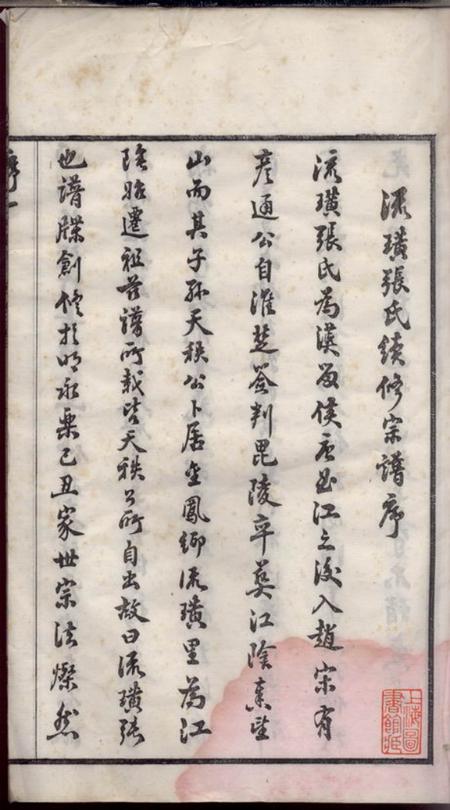 流璜張氏續修宗譜序
流璜張氏為漢留侯唐曲江之後入趙宋有
彥通公自淮楚簽判毘陵卒葬江陰秦望
山而其子孫天秩公卜居金鳳鄉流璜里為江
陰始遷祖茲譜所載皆天秩公所自出故曰流璜張
也譜牒創修於明永樂己丑家世宗法燦然
序一
上海圖
書館藏